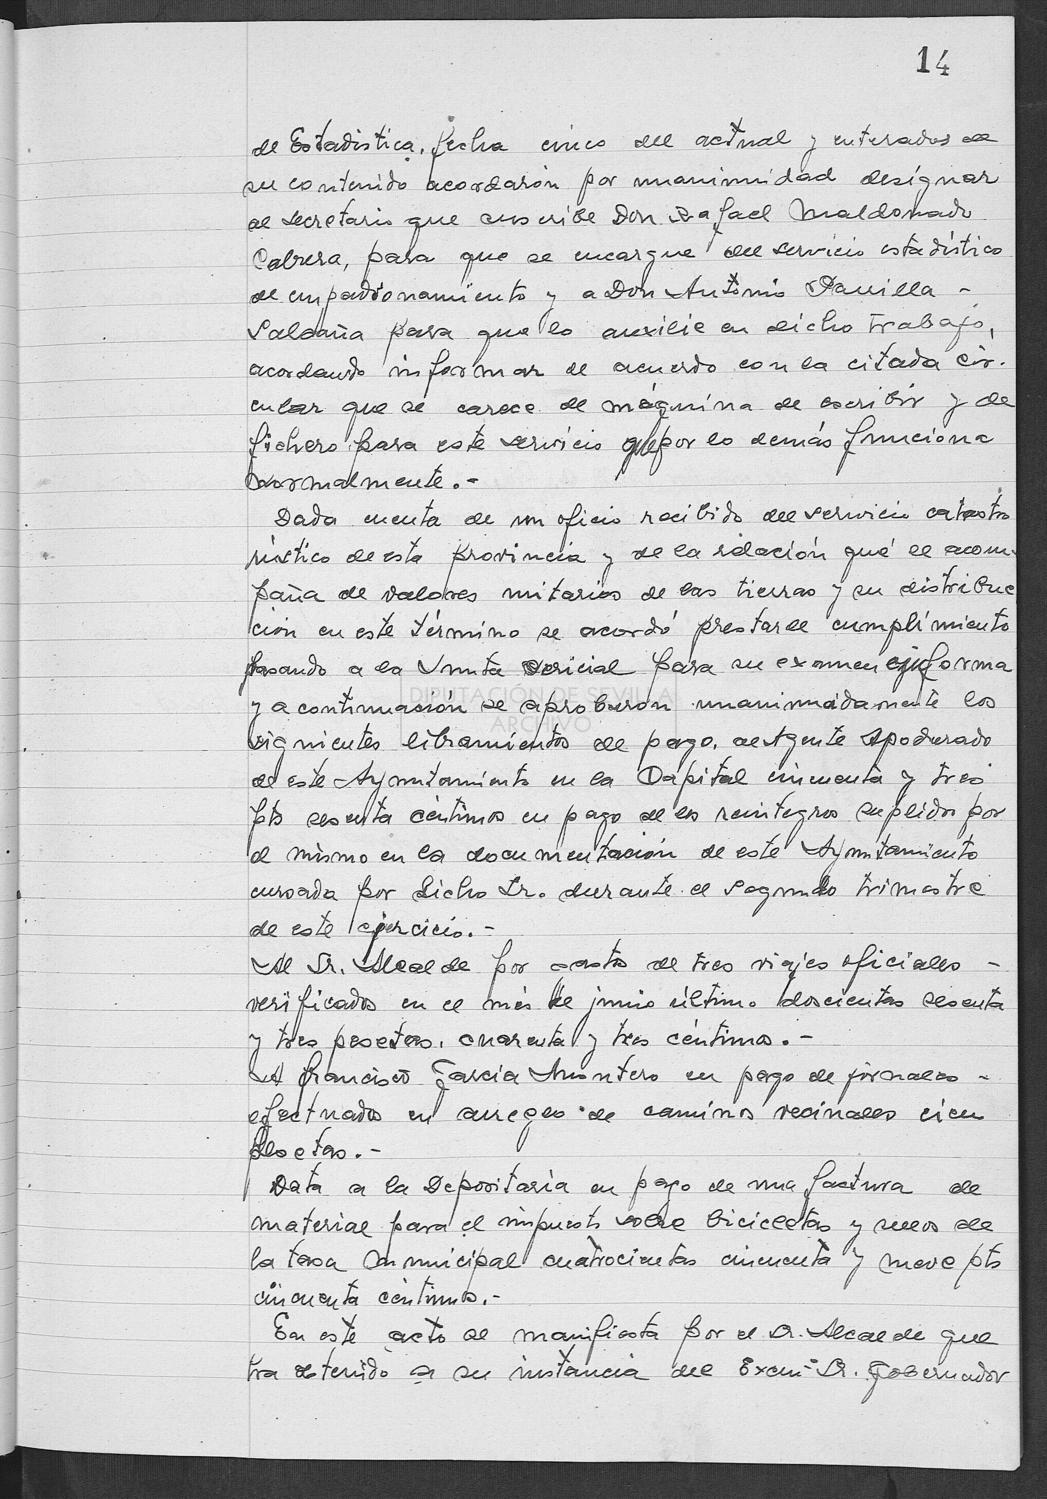 14
de Estadistica, fecha cinco del actual y enterados de
su contenido acordarón por unanimidad designar
al secretario que suscribe Don Rafael Maldonado
Cabrera, para que se encargue del servicio estadístico
de empadronamiento y a Don Antonio
Saldaña para que lo auxilie en dicho trabajo,
acordando informar de acuerdo con la citada cir-
cular que se carece de máquina de escribir y de
fichero para este servicio que por lo demás funciona
normalmente.-
Dada cuenta de un oficio recibido del servicio catastro
rústico de esta provincia y de la relación que al acom-
paña de valores unitarios de las tierras y su distribu
ción en este término se acordó prestarle cumplimiento
pasando a la Junta Pericial para su examen e informa
DIPUTACIÓN DE SEVILLA
ARCHIVO
y a continuación se aprobaron unanimidamente los
siguientes libramientos de pago. al Agente Apoderado
de este Ayuntamiento en la Capital cincuenta y tres
pts sesenta céntimos en pago de los reintegros suplidos por
el mismo en la documentación de este Ayuntamiento
cursada por dicho Sr. durante el segundo trimestre
de este ejercicio.-
Al Sr. Alcalde por gastos de tres viajes oficiales -
verificados en el mes de junio último doscientas sesenta
y tres pesetas, cuarenta y tres céntimos.-
A Francisco García Montero en pago de jornales -
efectuados en arreglo de caminos vecinales cien
pesetas.-
Data a la Depositaría en pago de una factura de
material para el impuesto sobre bicicletas y sellos de
la tasa municipal cuatrocientas cincuenta y nueve pts
cincuenta céntimos.-
En este acto se manifiesta por el Sr. Alcalde que
ha obtenido a su instancia del Excmº Sr. Gobernador